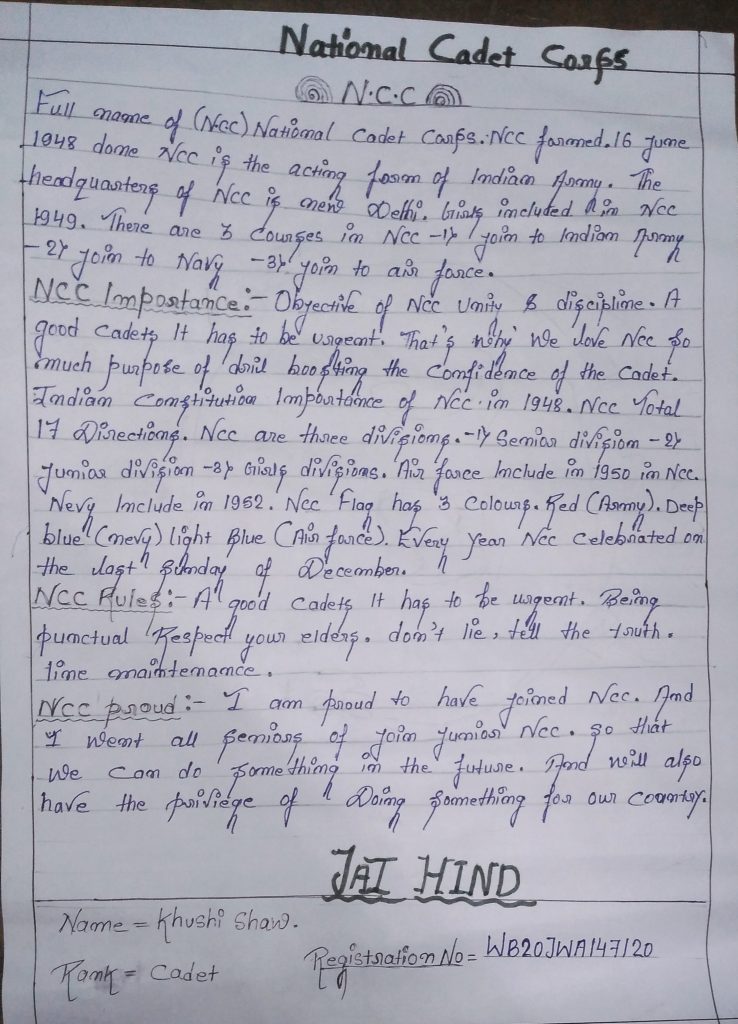 National Cadet Corps
N.C.C
Full name of (NCC) National Cadet Corps. NCC formed. 16 June
1948 done NCC is the acting form of Indian Army. The
headquarters of NCC is new Delhi. Girls included in NCC
1949. There are 3 Courses in NCC -1) join to Indian Army
-2) join to Navy -3) join to air force.
NCC Importance:- Objective of NCC Unity & discipline. A
good cadets It has to be urgent. That's why we love NCC so
much purpose of drill boosting the Confidence of the Cadet.
Indian Constitution Importance of NCC in 1948. NCC Total
17 Directions. NCC are three divisions. -1) Senior division -2)
Junior division -3) Girls divisions. Air force Include in 1950 in NCC.
Nevy Include in 1952. NCC Flag has 3 Colours. Red (Army). Deep
blue (nevy) light Blue (Air force). Every Year NCC Celebrated on
the last Sunday of December.
NCC Rules:- A good cadets It has to be urgent. Being
punctual Respect your elders. don't lie, tell the truth.
time maintenance.
NCC proud:- I am proud to have joined NCC. And
I went all seniors of join junior NCC. so that
we can do something in the future. And will also
have the priviege of Doing something for our country.
JAI HIND
Name = Khushi Shaw.
Rank = Cadet
Registration No = WB20JWA147120